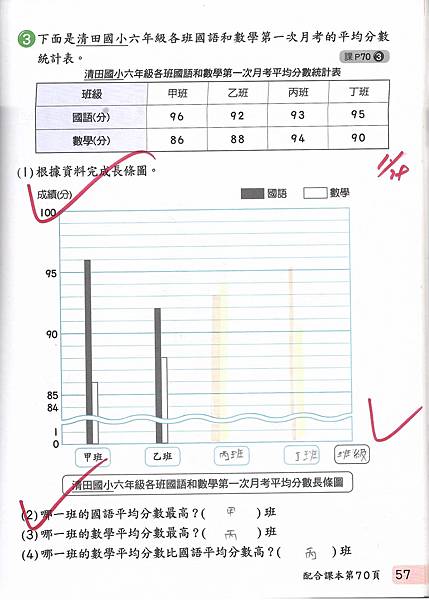 3 下面是清田國小六年級各班國語和數學第一次月考的平均分數
統計表。
課P70 3
清田國小六年級各班國語和數學第一次月考平均分數統計表
班級 甲班 乙班 丙班 丁班
國語(分) 96 92 93 95
數學(分) 86 88 94 90
11/28
(1)根據資料完成長條圖。
成績(分) 國語 數學
100
95
90
85
84
1
0
甲班 乙班 丙班 丁班 班級
清田國小六年級各班國語和數學第一次月考平均分數長條圖
(2)哪一班的國語平均分數最高?( 甲 )班
(3)哪一班的數學平均分數最高?( 丙 )班
(4)哪一班的數學平均分數比國語平均分數高?( 丙 )班
配合課本第70頁 57